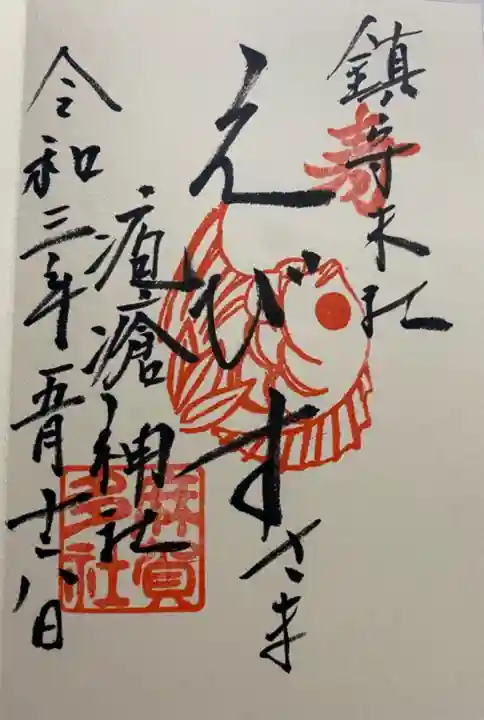 鎮守末社
寿
えびすさま
疱瘡神社
令和三年五月十八日